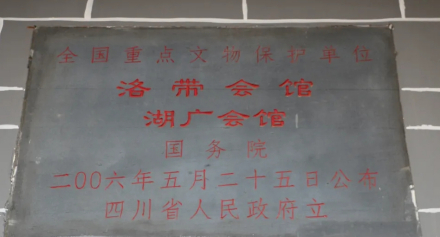 全国重点文物保护单位
洛带会馆
湖广会馆
国务院
二〇〇六年五月二十五日公布
四川省人民政府立